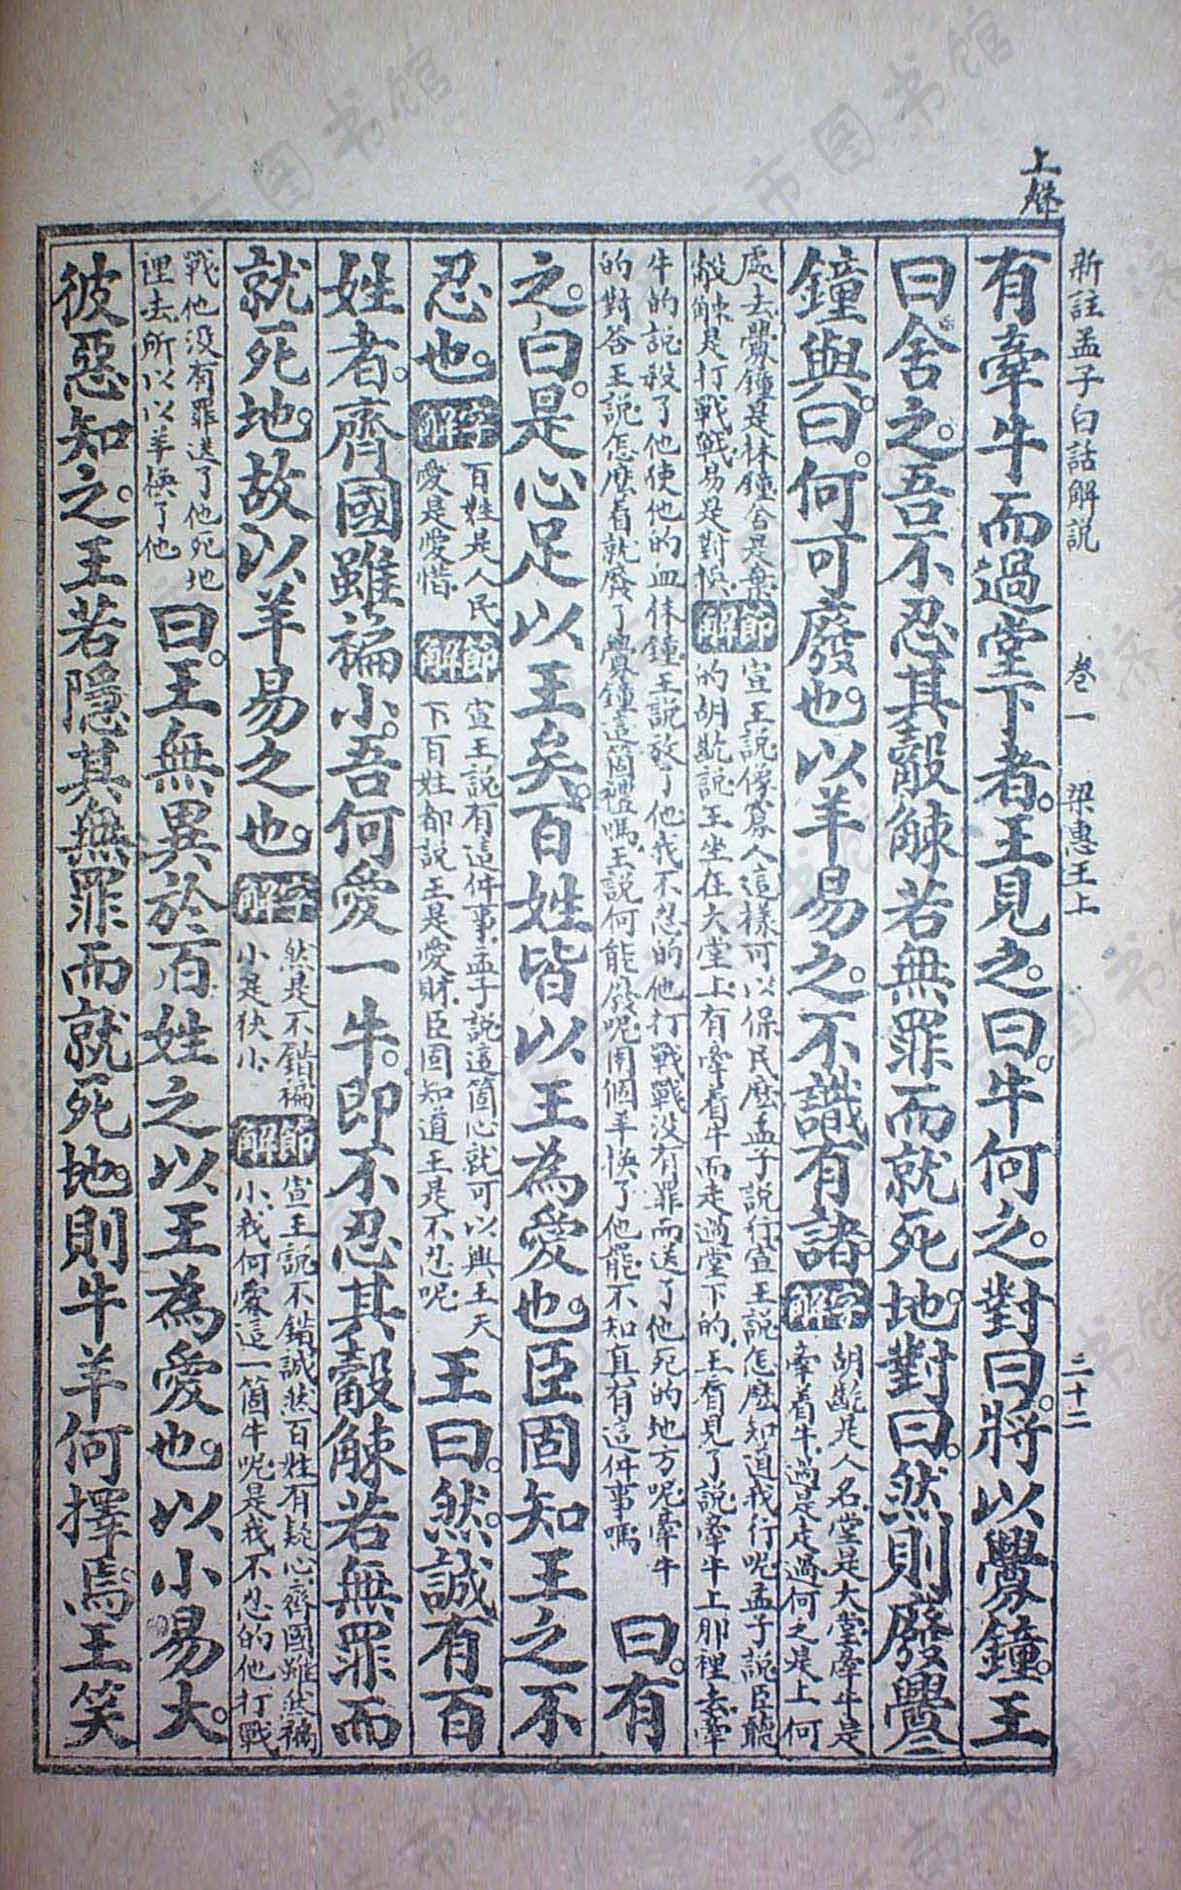 上解
新註孟子白話解説 卷一 梁惠王上 三十二
有牽牛而過堂下者。王見之。曰。牛何之。對曰。將以釁鐘。王
曰舍之。吾不忍其觳觫若無罪而就死地。對曰。然則廢釁
鐘與。曰。何可廢也。以羊易之。不識有諸。字解
胡齕是人名堂是大堂牽牛是
牽着牛過是走過何之是上何
處去釁鐘是林鐘舍是棄
觳觫是打戰戰易是對換
節解
宣王説像寡人這樣可以保民麼孟子説行宣王説怎麼知道我行呢孟子説臣聽
的胡齕説王坐在大堂上有牽着牛而走過堂下的王看見了説牽牛上那裡去牽
牛的説殺了他使他的血休鐘王説放了他我不忍的他打戰戰没有罪而送了他死的地方呢牽牛
的對答王説怎麼着就廢了釁鐘這箇禮嗎王説何能廢呢用個羊換了他罷不知真有這件事嗎
曰。有
之。曰。是心足以王矣。百姓皆以王為愛也。臣固知王之不
忍也。字解
百姓是人民
愛是愛惜
節解
宣王説有這件事孟子説這箇心就可以興王天
下百姓都説王是愛財臣固知道王是不忍呢
王曰。然。誠有百
姓者。齊國雖褊小。吾何愛一牛。即不忍其觳觫若無罪而
就死地。故以羊易之也。字解
然是不錯褊
小是狹小
節解
宣王説不錯誠然百姓有疑心齊國雖然褊
小我何愛這一箇牛呢是我不忍的他打戰
戰他没有罪送了他死地
裡去所以以羊換了他
曰。王無異於百姓之以王為愛也。以小易大。
彼惡知之。王若隱其無罪而就死地。則牛羊何擇焉。王笑